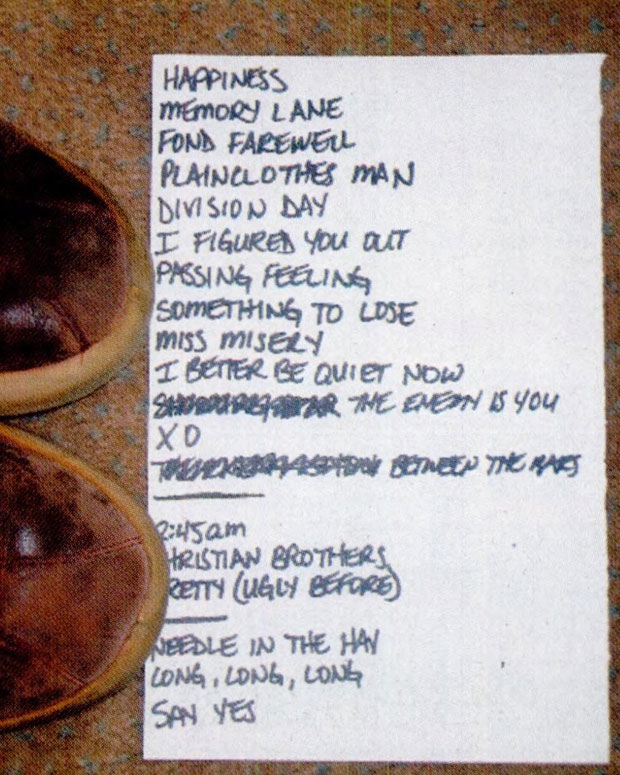 HAPPINESS
MEMORY LANE
FOND FAREWELL
PLAINCLOTHES MAN
DIVISION DAY
I FIGURED YOU OUT
PASSING FEELING
SOMETHING TO LOSE
MISS MISERY
I BETTER BE QUIET NOW
THE ENEMY IS YOU
XO
BETWEEN THE BARS
2:45am
HRISTIAN BROTHERS
RETTY (UGLY BEFORE)
NEEDLE IN THE HAY
LONG, LONG, LONG
SAY YES